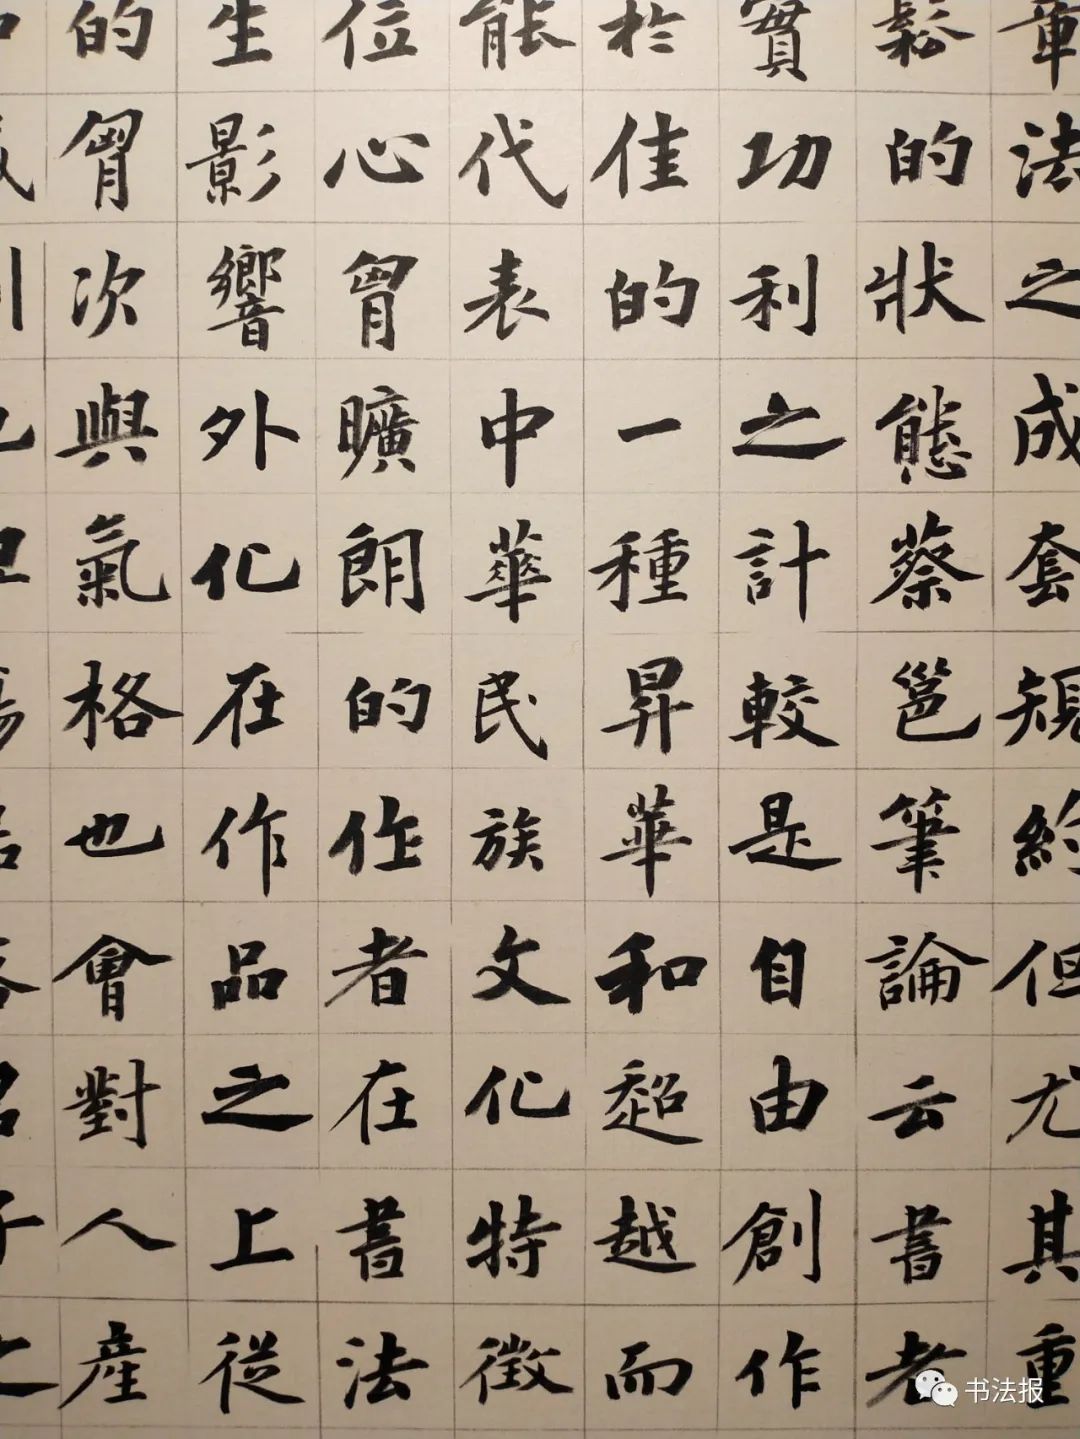 章法之成套規約但尤其重
鬆的狀態蔡邕筆論云書者
實功利之計較是自由創作
於佳的一種昇華和超越而
能代表中華民族文化特徵
位心胷曠朗的作者在書法
生影響外化在作品之上從
的胷次與氣格也會對人產
书法报